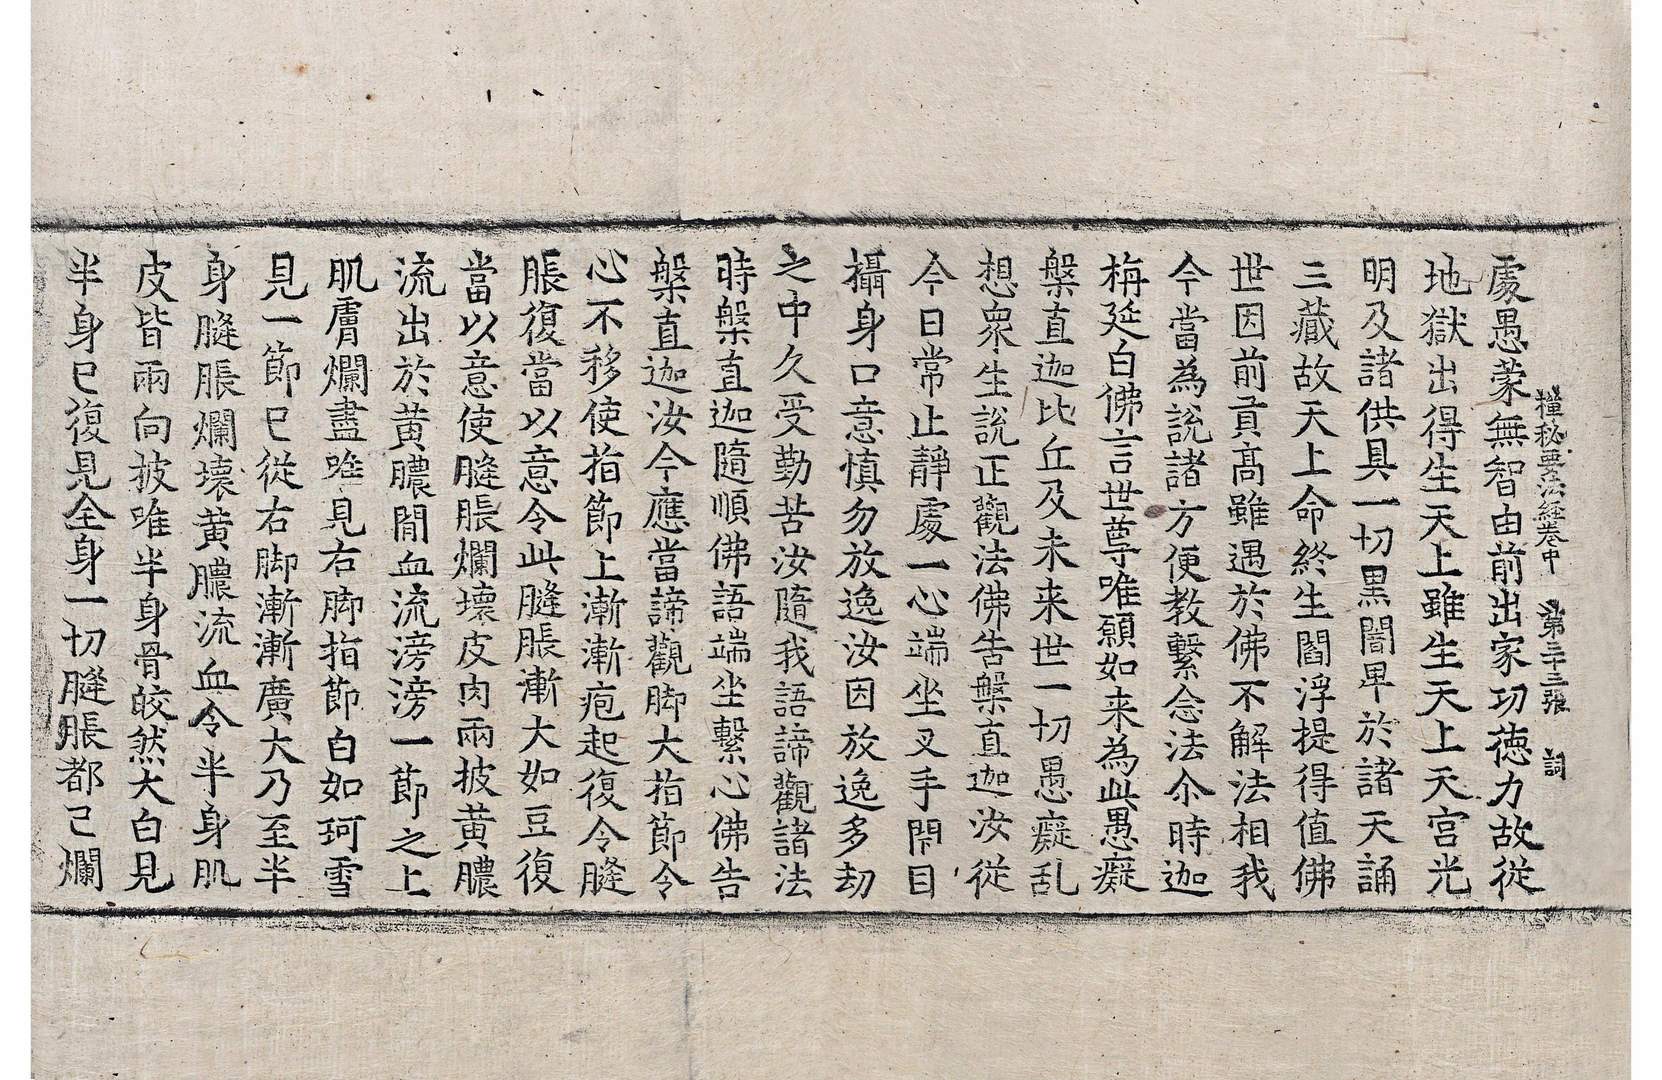 禪秘要法經卷中　第三十三張　詞
處愚蒙無智由前出家功德力故從
地獄出得生天上雖生天上天宮光
明及諸供具一切黑闇卑於諸天誦
三藏故天上命終生閻浮提得值佛
世因前貢高雖遇於佛不解法相我
今當為說諸方便教繫念法尒時迦
栴延白佛言世尊唯願如來為此愚癡
槃直迦比丘及未来世一切愚癡乱
想衆生說正觀法佛告槃直迦汝從
今日常止靜處一心端坐叉手閇目
攝身口意慎勿放逸汝因放逸多劫
之中久受勤苦汝隨我語諦觀諸法
時槃直迦隨順佛語端坐繫心佛告
槃直迦汝今應當諦觀脚大指節令
心不移使指節上漸漸疱起復令膖
脹復當以意令此膖脹漸大如豆復
當以意使膖脹爛壞皮肉兩披黄膿
流出於黄膿間血流滂滂一節之上
肌膚爛盡唯見右脚指節白如珂雪
見一節已從右脚漸漸廣大乃至半
身膖脹爛壞黄膿流血令半身肌
皮皆兩向披唯半身骨皎然大白見
半身已復見全身一切膖脹都已爛